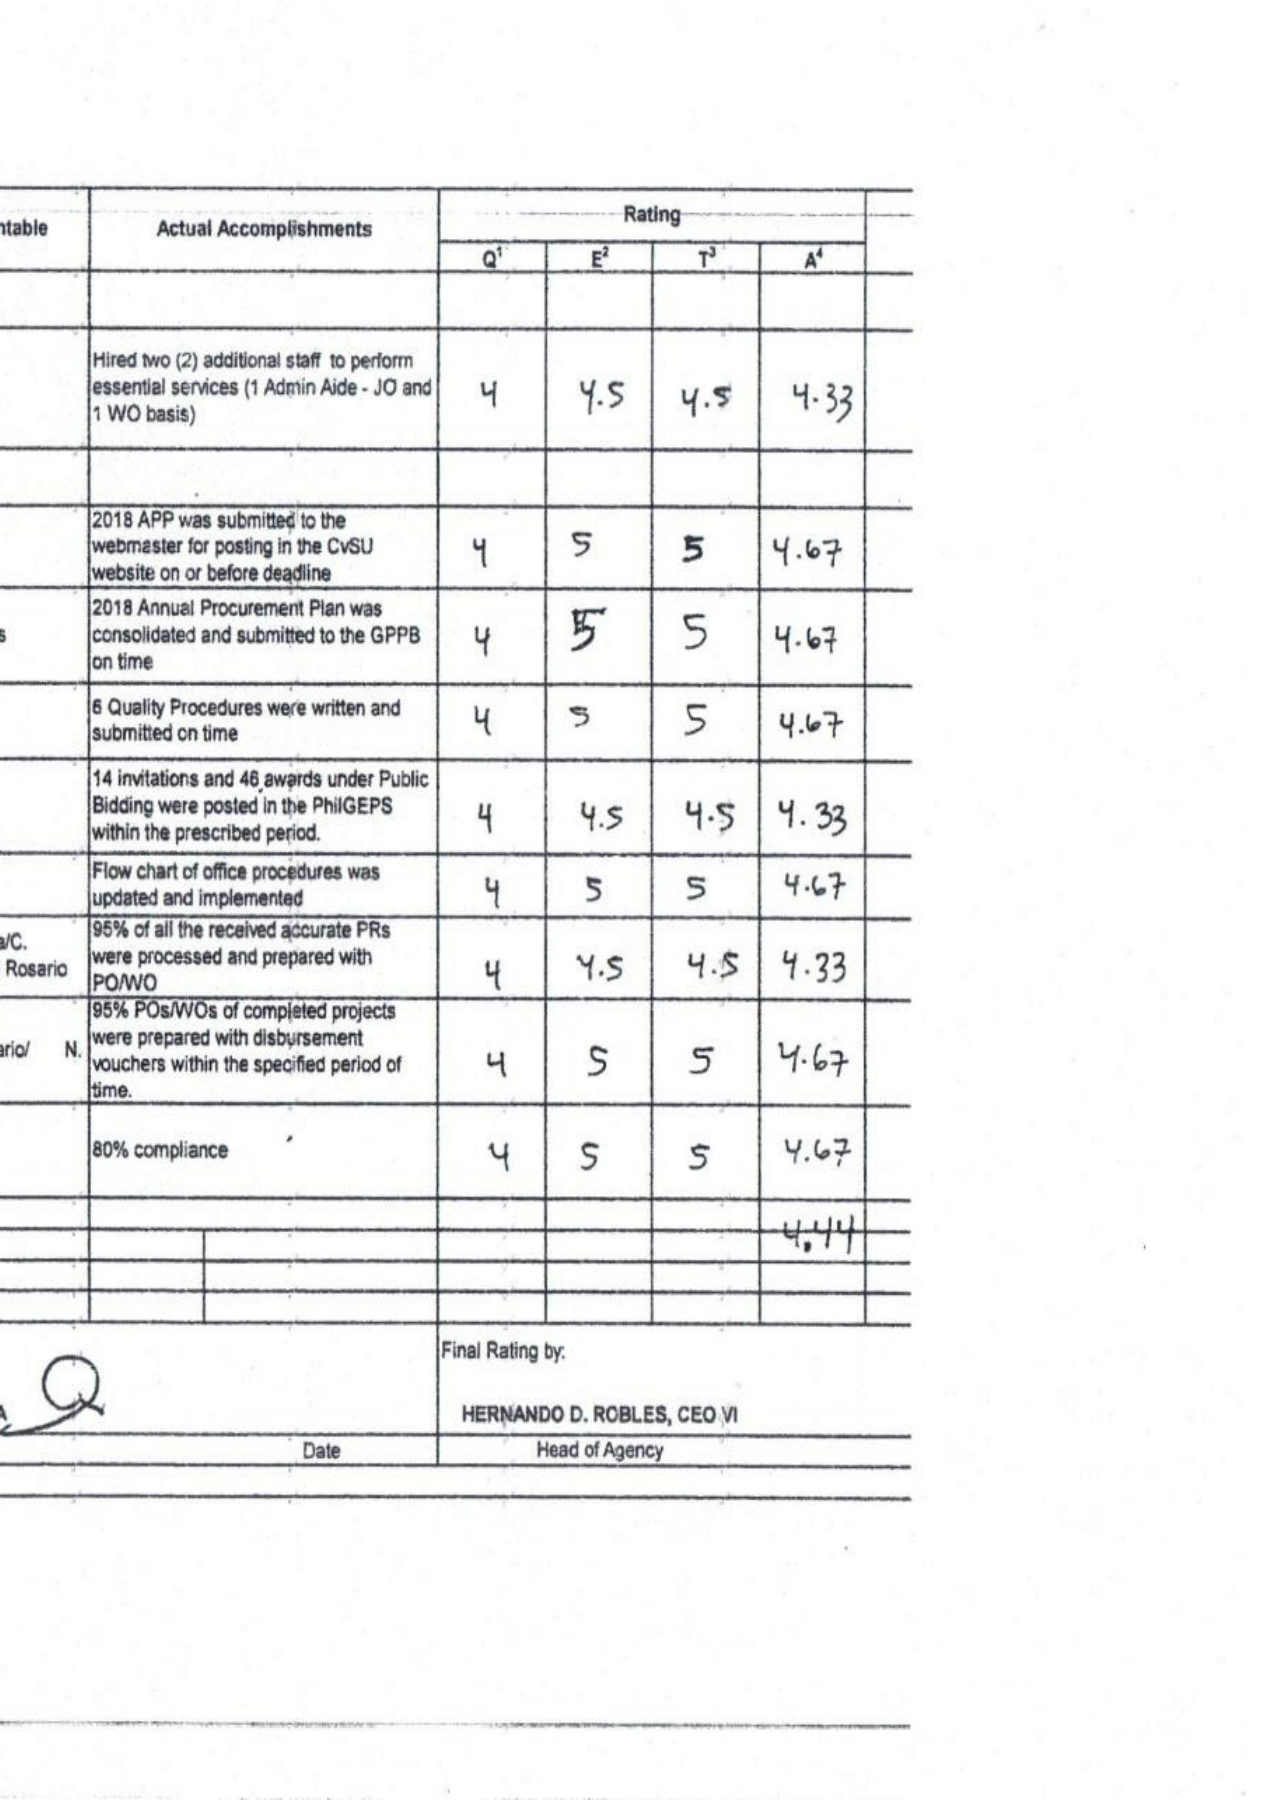 ntable
Actual Accomplishments
Rating
Q¹ E² T³ A⁴
Hired two (2) additional staff to perform
essential services (1 Admin Aide - JO and
1 WO basis)
4 4.5 4.5 4.33
2018 APP was submitted to the
webmaster for posting in the CvSU
website on or before deadline
4 5 5 4.67
s
2018 Annual Procurement Plan was
consolidated and submitted to the GPPB
on time
4 5 5 4.67
6 Quality Procedures were written and
submitted on time
4 5 5 4.67
14 invitations and 46 awards under Public
Bidding were posted in the PhilGEPS
within the prescribed period.
4 4.5 4.5 4.33
Flow chart of office procedures was
updated and implemented
4 5 5 4.67
a/C.
Rosario
95% of all the received accurate PRs
were processed and prepared with
PO/WO
4 4.5 4.5 4.33
ario/ N.
95% POs/WOs of completed projects
were prepared with disbursement
vouchers within the specified period of
time.
4 5 5 4.67
80% compliance
4 5 5 4.67
4.44
Final Rating by:
A
HERNANDO D. ROBLES, CEO VI
Date
Head of Agency